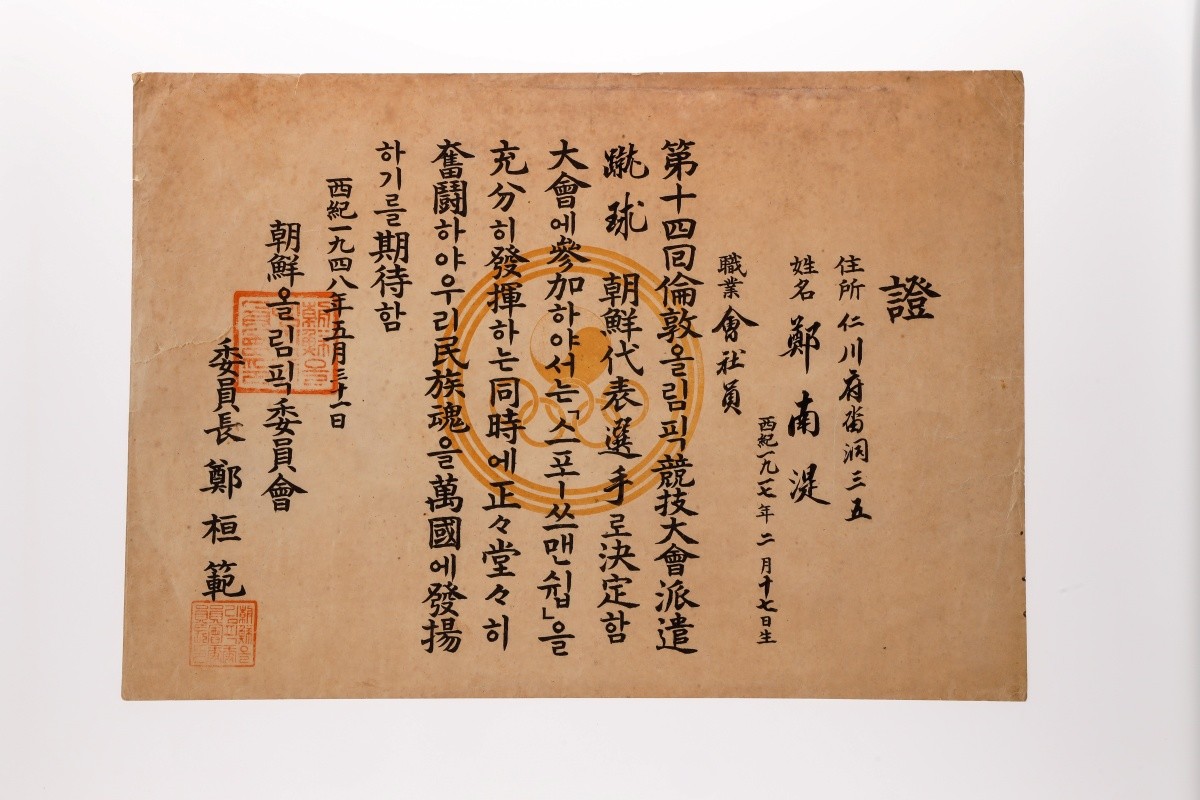 證
住所 仁川府畓洞三五
姓名 鄭南湜
西紀一九一七年二月十七日生
職業 會社員
第十四回倫敦올림픽競技大會派遣
蹴球 朝鮮代表選手로決定함
大會에參加하야서는「스포ー쓰맨쉽」을
充分히發揮하는同時에正々堂々히
奮鬪하야우리民族魂을萬國에發揚
하기를期待함
西紀一九四八年五月三十一日
朝鮮올림픽委員會
委員長 鄭桓範